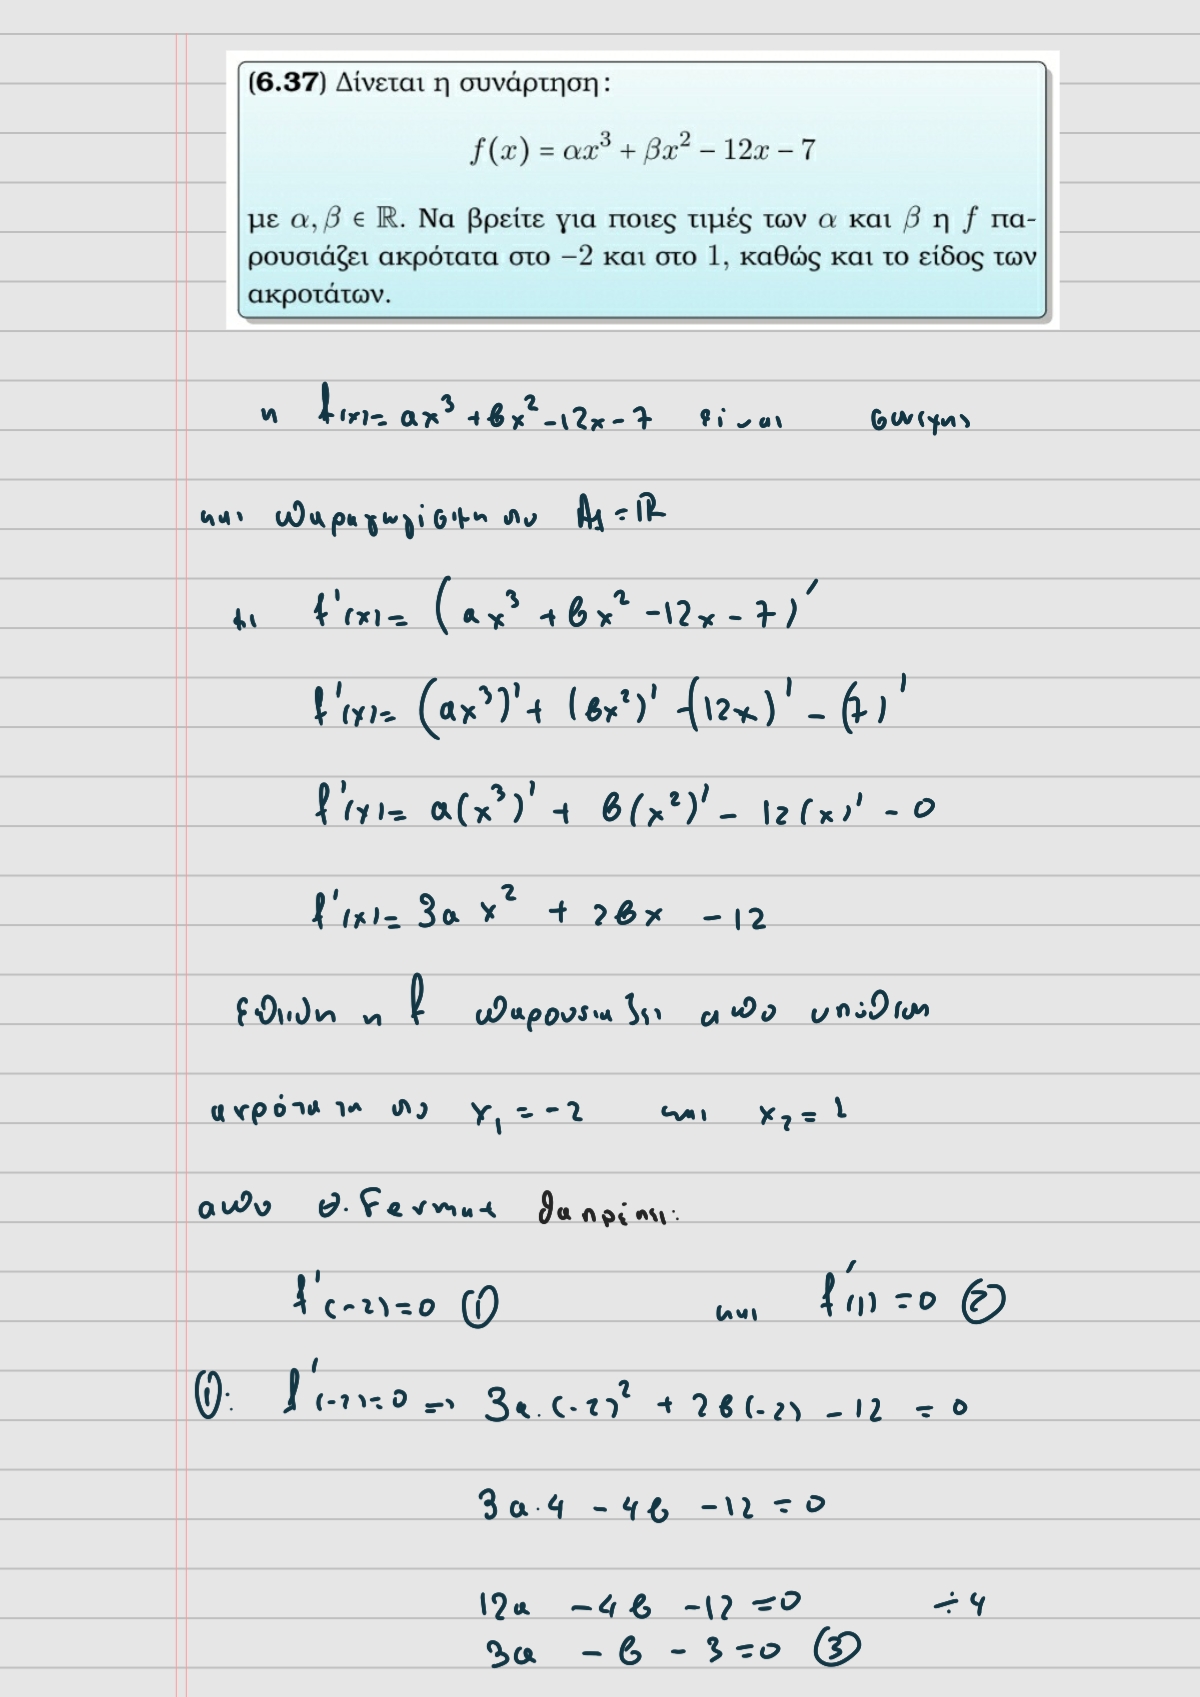 (6.37) Δίνεται η συνάρτηση:
f(x) = αx³ + βx² − 12x − 7
με α, β ∈ ℝ. Να βρείτε για ποιες τιμές των α και β η f πα-
ρουσιάζει ακρότατα στο −2 και στο 1, καθώς και το είδος των
ακροτάτων.
η f(x)= αx³ +βx² -12x - 7 είναι συνεχης
και παραγωγίσιμη στο Af = ℝ
με f'(x)= (αx³ + βx² -12x - 7)'
f'(x)= (αx³)' + (βx²)' -(12x)' - (7)'
f'(x)= α(x³)' + β(x²)' - 12(x)' - 0
f'(x)= 3α x² + 2βx - 12
Επειδη η f παρουσιαζει απο υπόθεση
ακρότατα στο x₁ = -2 και x₂ = 1
απο Θ. Fermat θα πρέπει:
f'(-2)=0 ① και f'(1) =0 ②
①: f'(-2)=0 => 3α·(-2)² + 2β(-2) - 12 = 0
3α·4 - 4β - 12 = 0
12α - 4β - 12 = 0 ÷4
3α - β - 3 = 0 ③